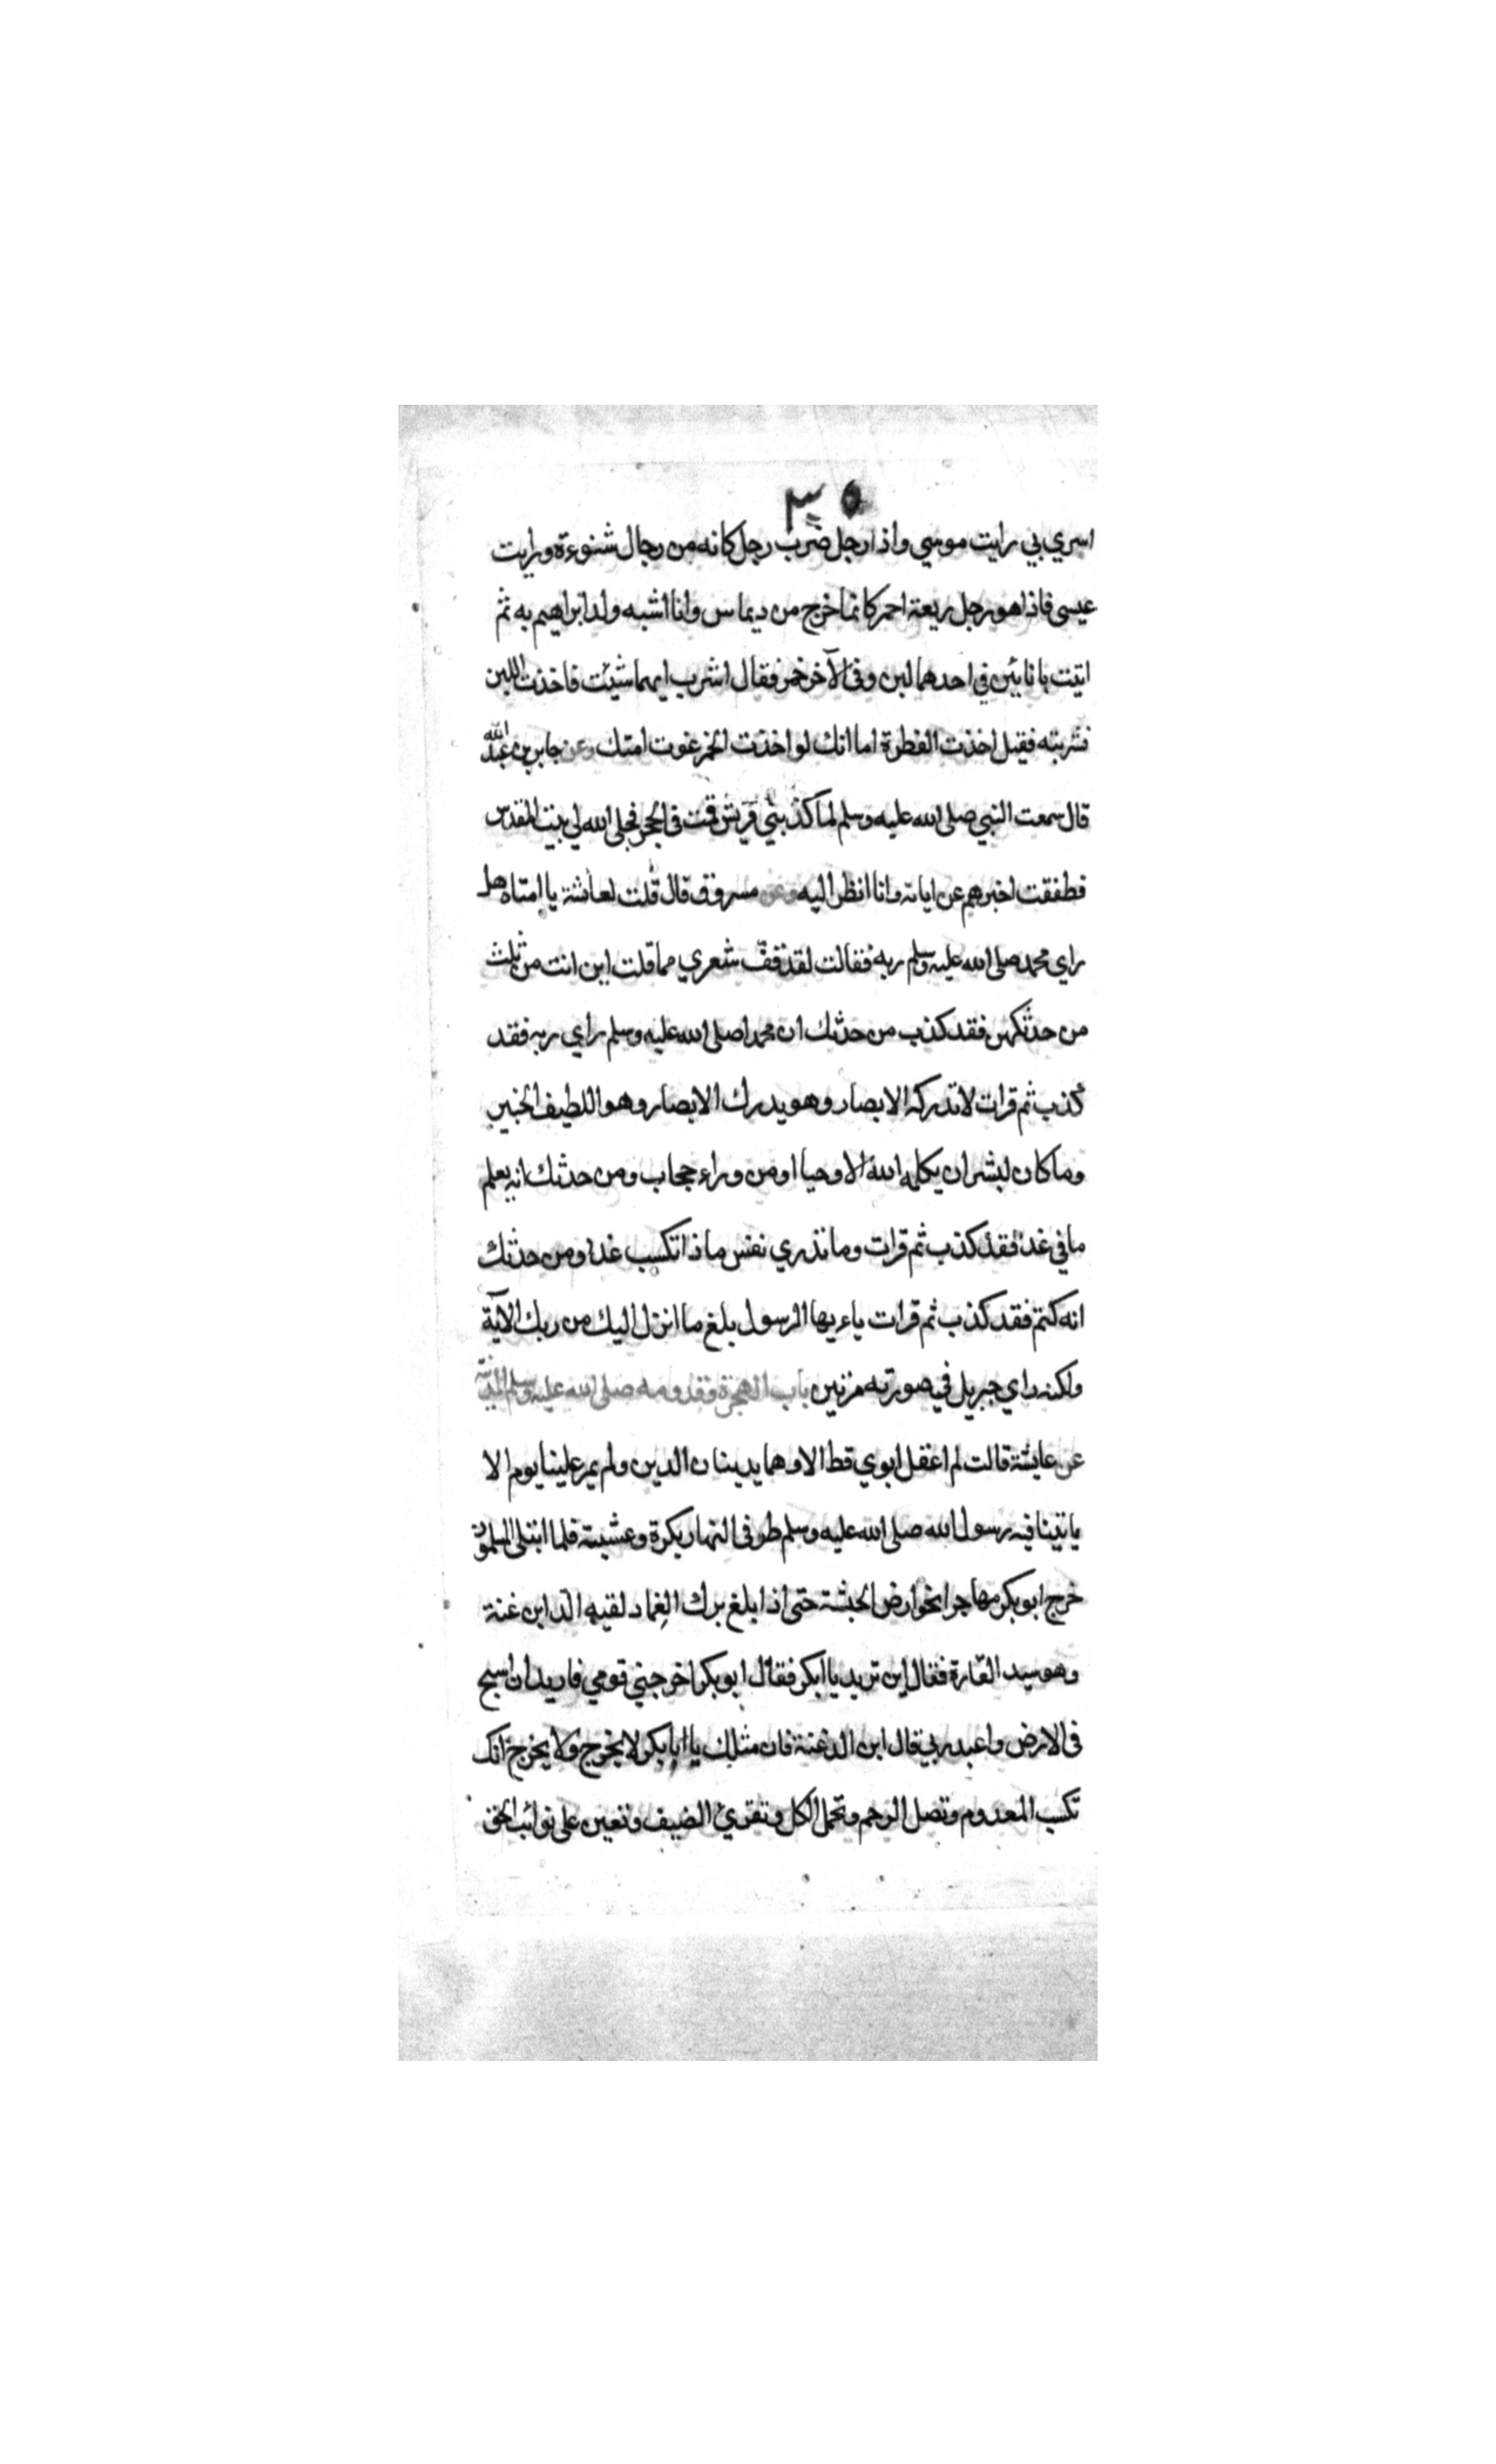 ٣٥
اسري بي رايت موسي واذا رجل ضرب رجل كانه من رجال شنوءة ورايت
عيسى فاذا هو رجل ربعة احمر كانما خرج من ديماس وانا اشبه ولد ابراهيم به ثم
اتيت بانائين في احدهما لبن وفى الآخر خمر فقال اشرب ايهما شئت فاخذت اللبن
فشربته فقيل اخذت الفطرة اما انك لو اخذت الخمر غوت امتك وعن جابر بن عبد الله
قال سمعت النبي صلى الله عليه وسلم لما كذبني قريش قمت فى الحجر فجلى الله لي بيت المقدس
فطفقت اخبرهم عن اياته وانا انظر اليه وعن مسروق قال قلت لعائشة يا امتاه هل
راي محمد صلى الله عليه وسلم ربه فقالت لقد قفّ شعري مما قلت اين انت من ثلث
من حدثكهن فقد كذب من حدثك ان محمدا صلى الله عليه وسلم راي ربه فقد
كذب ثم قرات لا تدركه الابصار وهو يدرك الابصار وهو اللطيف الخبير
وما كان لبشر ان يكلمه الله الا وحيا او من وراء حجاب ومن حدثك انه يعلم
ما في غد فقد كذب ثم قرات وما تدري نفس ماذا تكسب غدا ومن حدثك
انه كتم فقد كذب ثم قرات ياءيها الرسول بلغ ما انزل اليك من ربك الآية
ولكنه راي جبريل في صورته مرتين باب الهجرة وقدومه صلى الله عليه وسلم المدينة
عن عايشة قالت لم اعقل ابوي قط الا وهما يدينان الدين ولم يمر علينا يوم الا
ياتينا فيه رسول الله صلى الله عليه وسلم طرفى النهار بكرة وعشية فلما ابتلى المسلمون
خرج ابو بكر مهاجرا نحو ارض الحبشة حتى اذا بلغ برك الغماد لقيه الد ابن غنة
وهو سيد القارة فقال اين تريد يا ابكر فقال ابو بكر اخرجني قومي فاريد ان اسيح
فى الارض واعبد ربي قال ابن الدغنة فان مثلك يا ابا بكر لا يخرج ولا يخرج انك
تكسب المعدوم وتصل الرحم وتحمل الكل وتقرئ الضيف وتعين على نوائب الحق